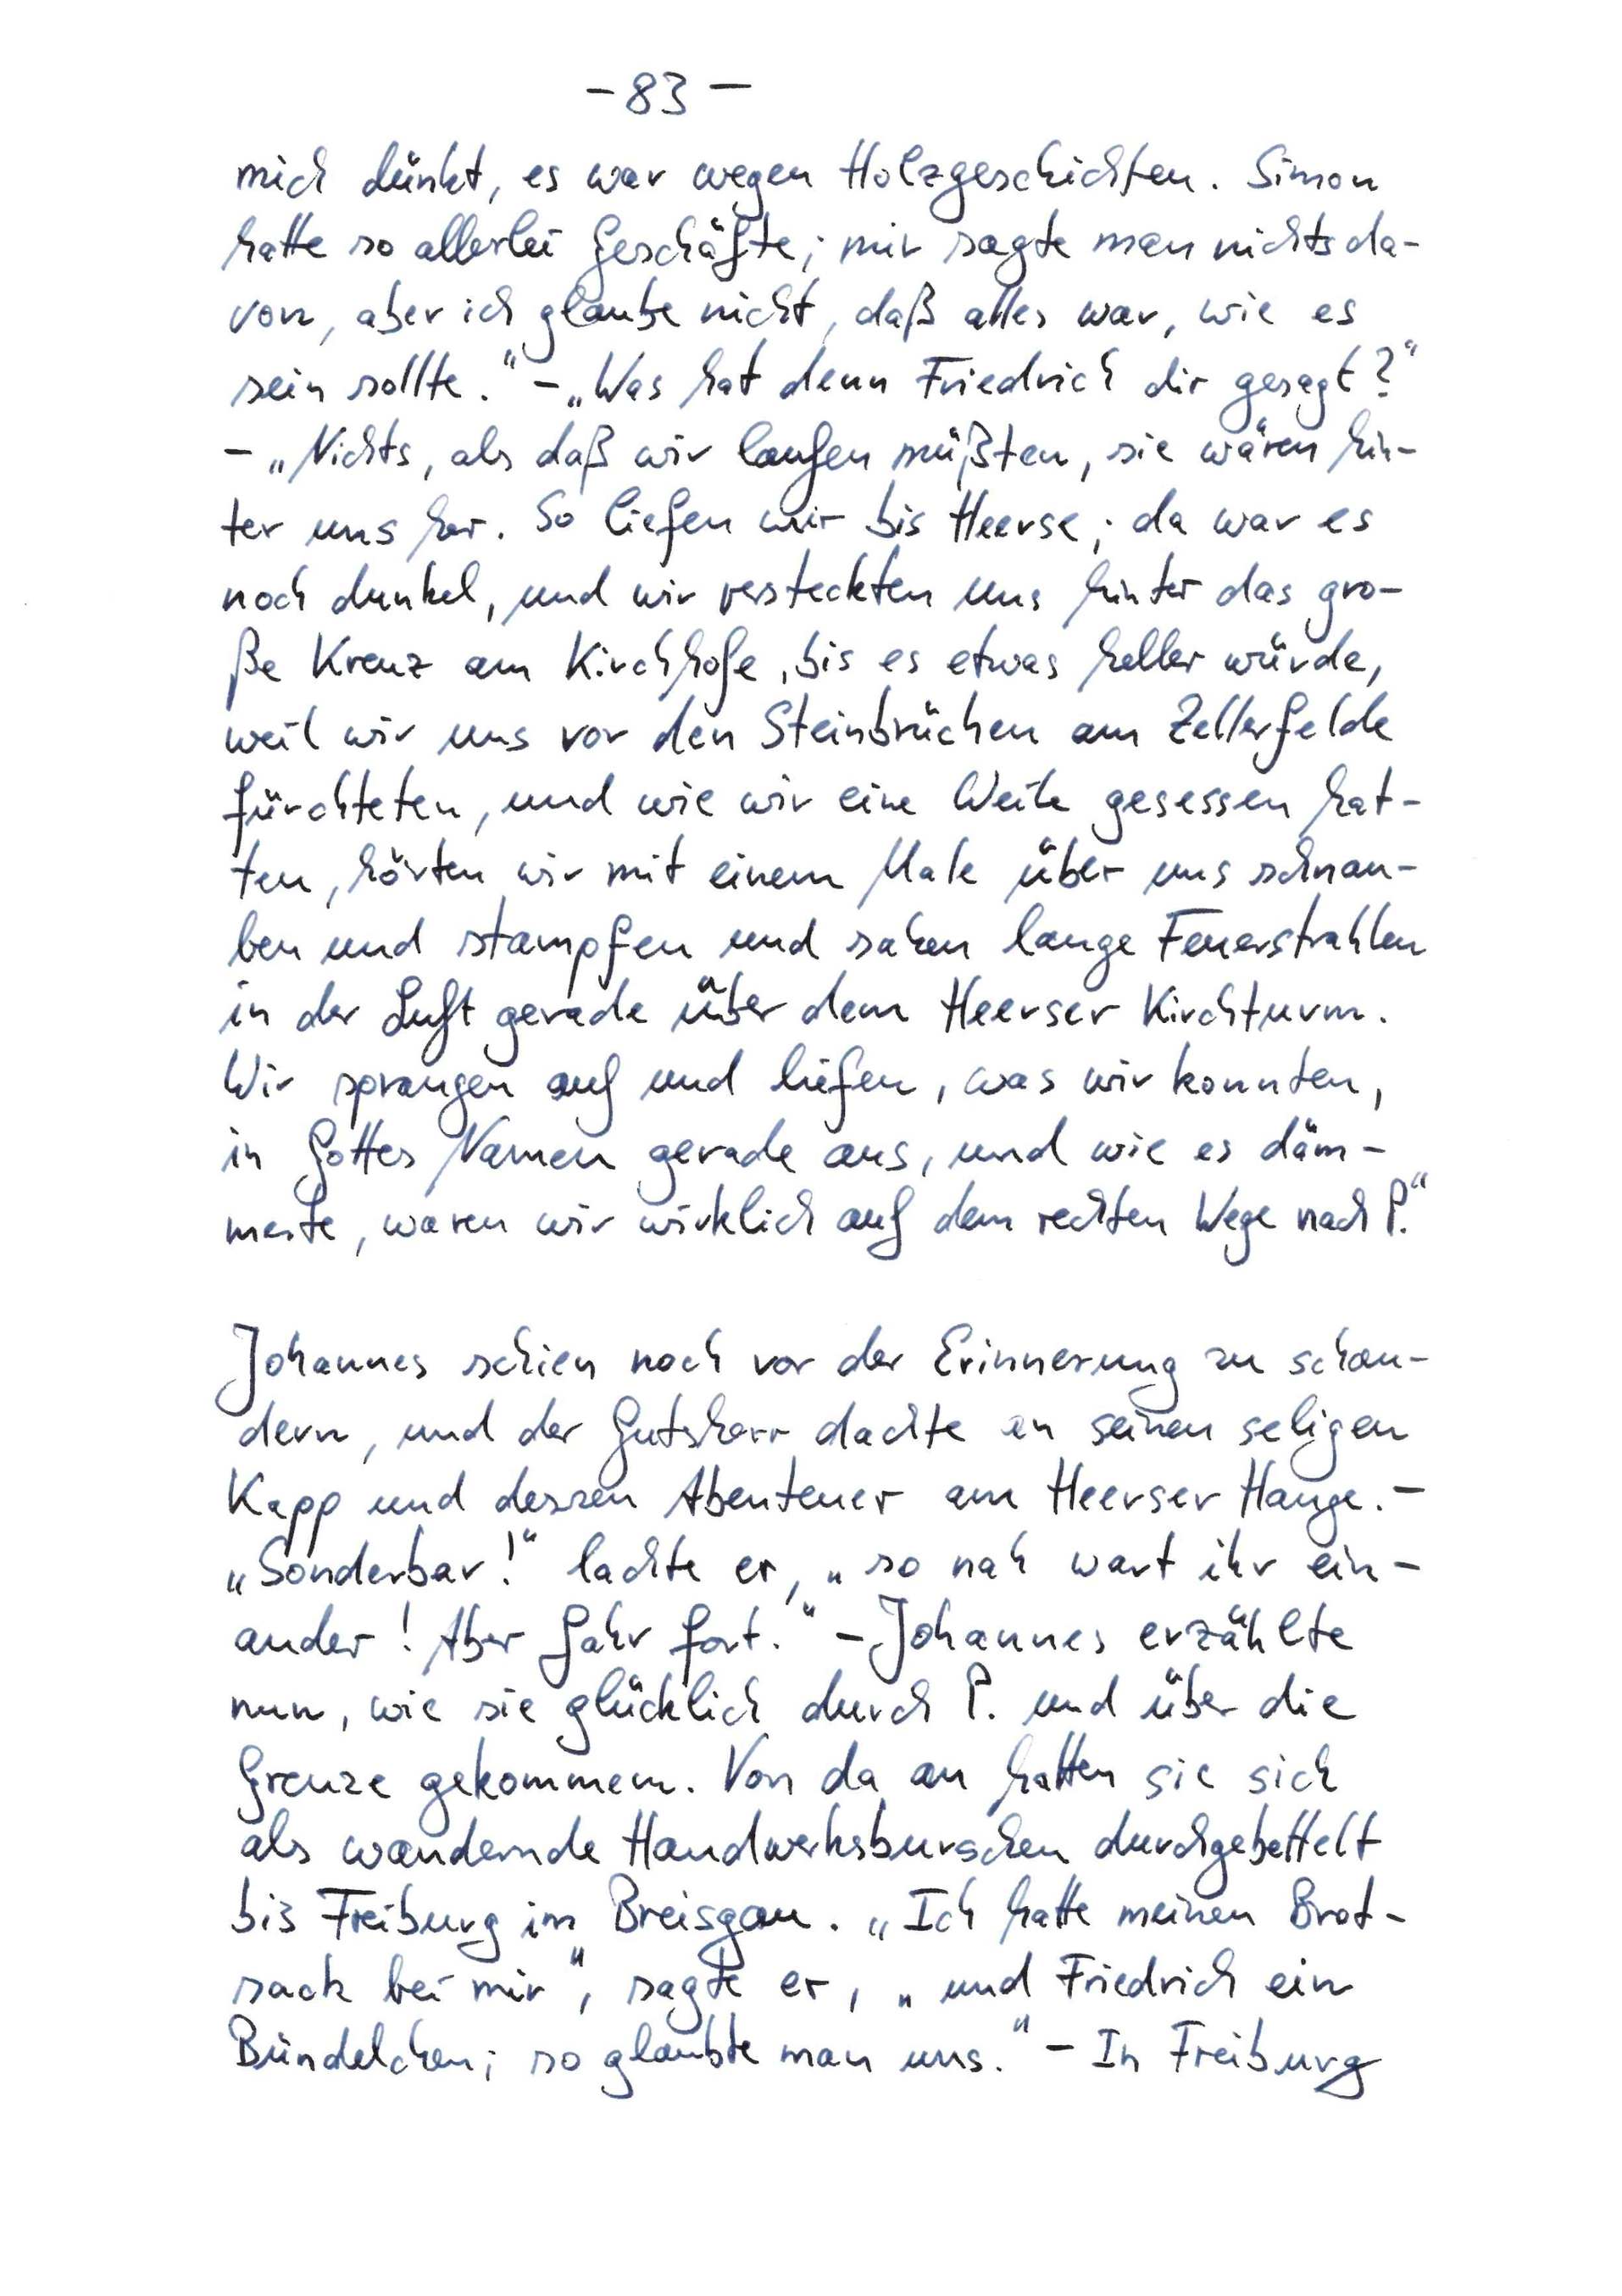 - 83 -
mich dünkt, es war wegen Holzgeschichten. Simon
hatte so allerlei Geschäfte; mir sagte man nichts da-
von, aber ich glaube nicht, daß alles war, wie es
sein sollte." - „Was hat denn Friedrich dir gesagt?"
- „Nichts, als daß wir laufen müßten, sie wären hin-
ter uns her. So liefen wir bis Heerse; da war es
noch dunkel, und wir versteckten uns hinter das gro-
ße Kreuz am Kirchhofe, bis es etwas heller würde,
weil wir uns vor den Steinbrüchen am Zellerfelde
fürchteten, und wie wir eine Weile gesessen hat-
ten, hörten wir mit einem Male über uns schnau-
ben und stampfen und sahen lange Feuerstrahlen
in der Luft gerade über dem Heerser Kirchturm.
Wir sprangen auf und liefen, was wir konnten,
in Gottes Namen gerade aus, und wie es däm-
merte, waren wir wirklich auf dem rechten Wege nach P."
Johannes schien noch vor der Erinnerung zu schau-
dern, und der Gutsherr dachte an seinen seligen
Kapp und dessen Abenteuer am Heerser Hange. -
„Sonderbar!" lachte er, „so nah wart ihr ein-
ander! Aber fahr fort." - Johannes erzählte
nun, wie sie glücklich durch P. und über die
Grenze gekommen. Von da an hatten sie sich
als wandernde Handwerksburschen durchgebettelt
bis Freiburg im Breisgau. „Ich hatte meinen Brot-
sack bei mir", sagte er, „und Friedrich ein
Bündelchen; so glaubte man uns." - In Freiburg